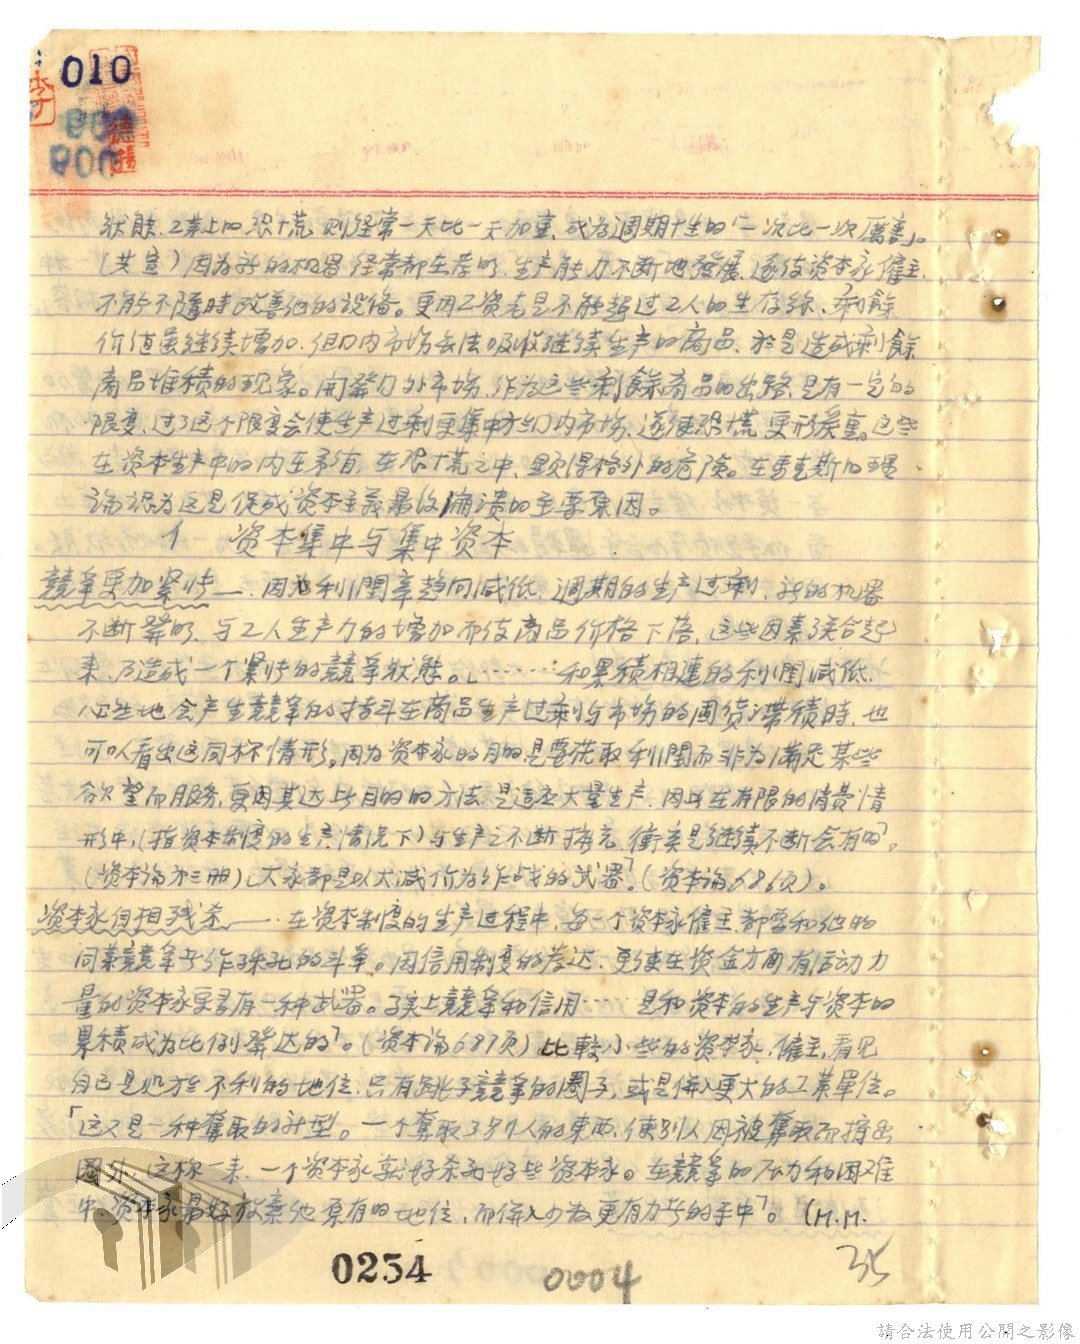 010
009
900
李
德揚
状態,工業上的恐慌,则经常一天比一天加重,成為週期性的「一次比一次厲害」。
(共宣)因為新的机器经常都在发明,生产能力不断地發展,遂使资本家僱主,
不能不隨時改善他的設备。更因工资老是不能超过工人的生存線,剩餘
价值虽继续增加,但囗内市场无法吸收继续生产的商品,於是造成剩餘
商品堆積的现象。開發囗外市场,作為这些剩餘商品的出路,是有一定的
限度,过了这个限度会使生产过剩更集中於囗内市场,遂使恐慌更形严重。这些
在资本生产中的内在矛盾,在恐慌之中,显得格外的危險。在馬克斯的理
論認为这是促成资本主義最後崩潰的主要原因。
1 资本集中与集中资本
競争更加緊张—,因為利潤率趋向减低,週期的生产过剩,新的机器
不断發明,与工人生产力的增加而使商品价格下落,这些因素联合起
来,乃造成一个緊张的競争狀態。「……和累積相連的利潤减低,
必然地会产生競争的掙斗在商品生产过剩与市场的囤货滯積時,也
可以看出这同样情形,因为资本家的目的是要获取利潤而非为滿足某些
欲望而服务,更因其达此目的的方法是适应大量生产,因此在有限的消费情
形中,(指资本制度的生产情况下)与生产之不断扩充,衝突是继续不断会有的」。
(资本論第三冊)「大家都是以大減价为作战的武器」。(资本論686页)。
资本家自相残杀—,在资本制度的生产过程中,每一个资本家僱主,都要和他的
同業競争与作殊死的斗争。因信用制度的发达,更使在资金方面有活动力
量的资本家更富有一种武器。「事实上競争和信用……是和资本的生产与资本的
累積成为比例發达的」。(资本論687页)比較小些的资本家,僱主,看见
自己是处於不利的地位,只有跳出競争的圈子,或是併入更大的工業單位。
「这又是一种奪取的典型。一个奪取了别人的東西,使别人因被奪取而擠出
圈外,这样一来,一个资本家就好杀死好些资本家。在競争的压力和困难
中,资本家最好放棄他原有的地位,而併入少数更有力者的手中」。(M.M.
0234
0004
35
請合法使用公開之影像